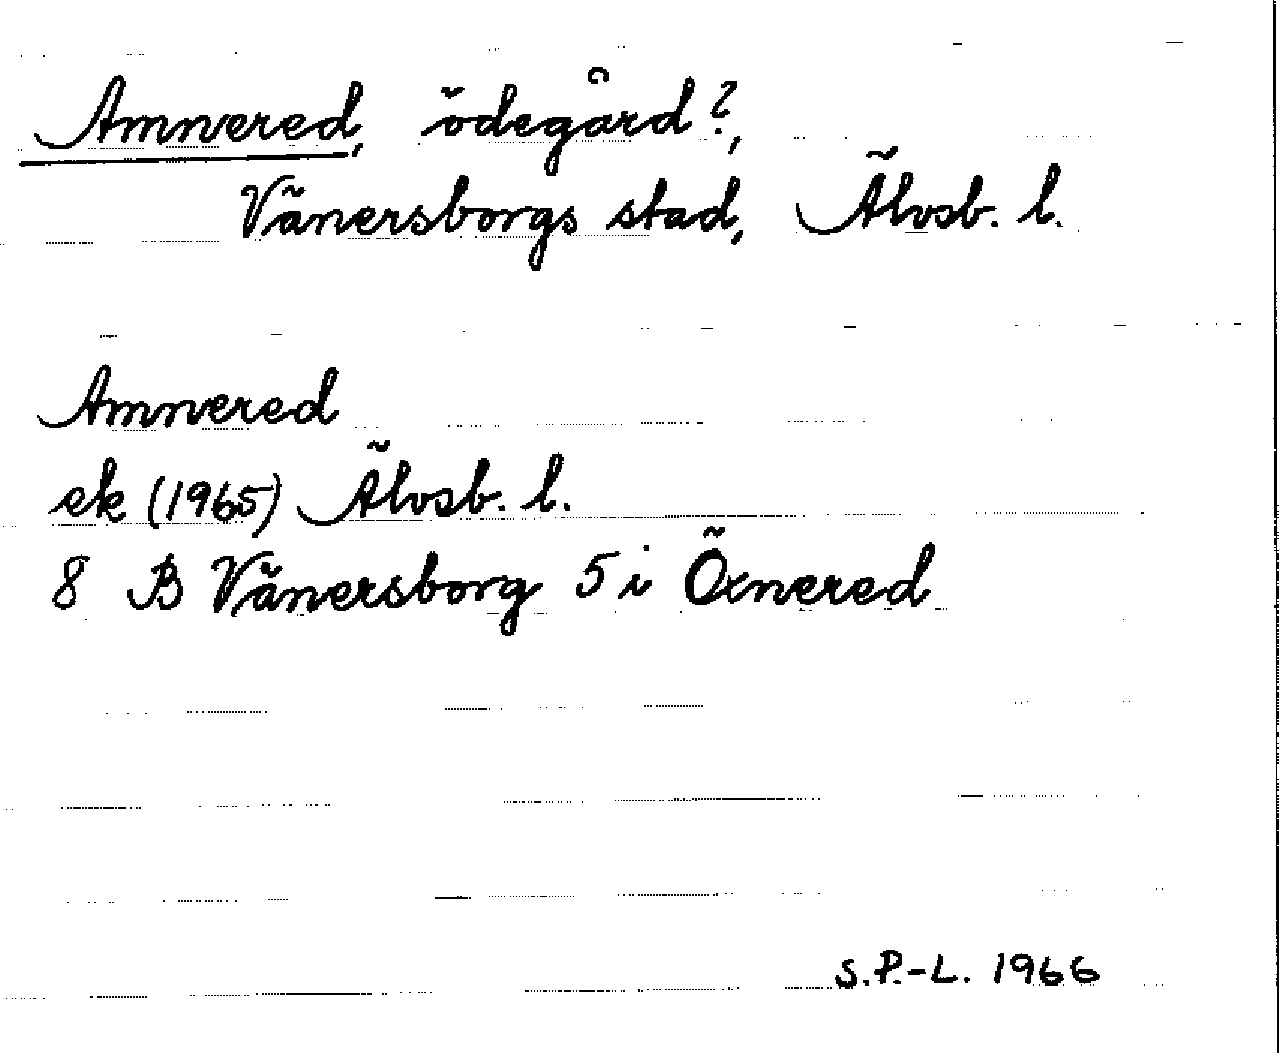 Amnered, ödegård?,
Vänersborgs stad, Älvsb. l.
Amnered
ek (1965) Älvsb. l.
8 B Vänersborg 5 i Öxnered
S.P.-L. 1966